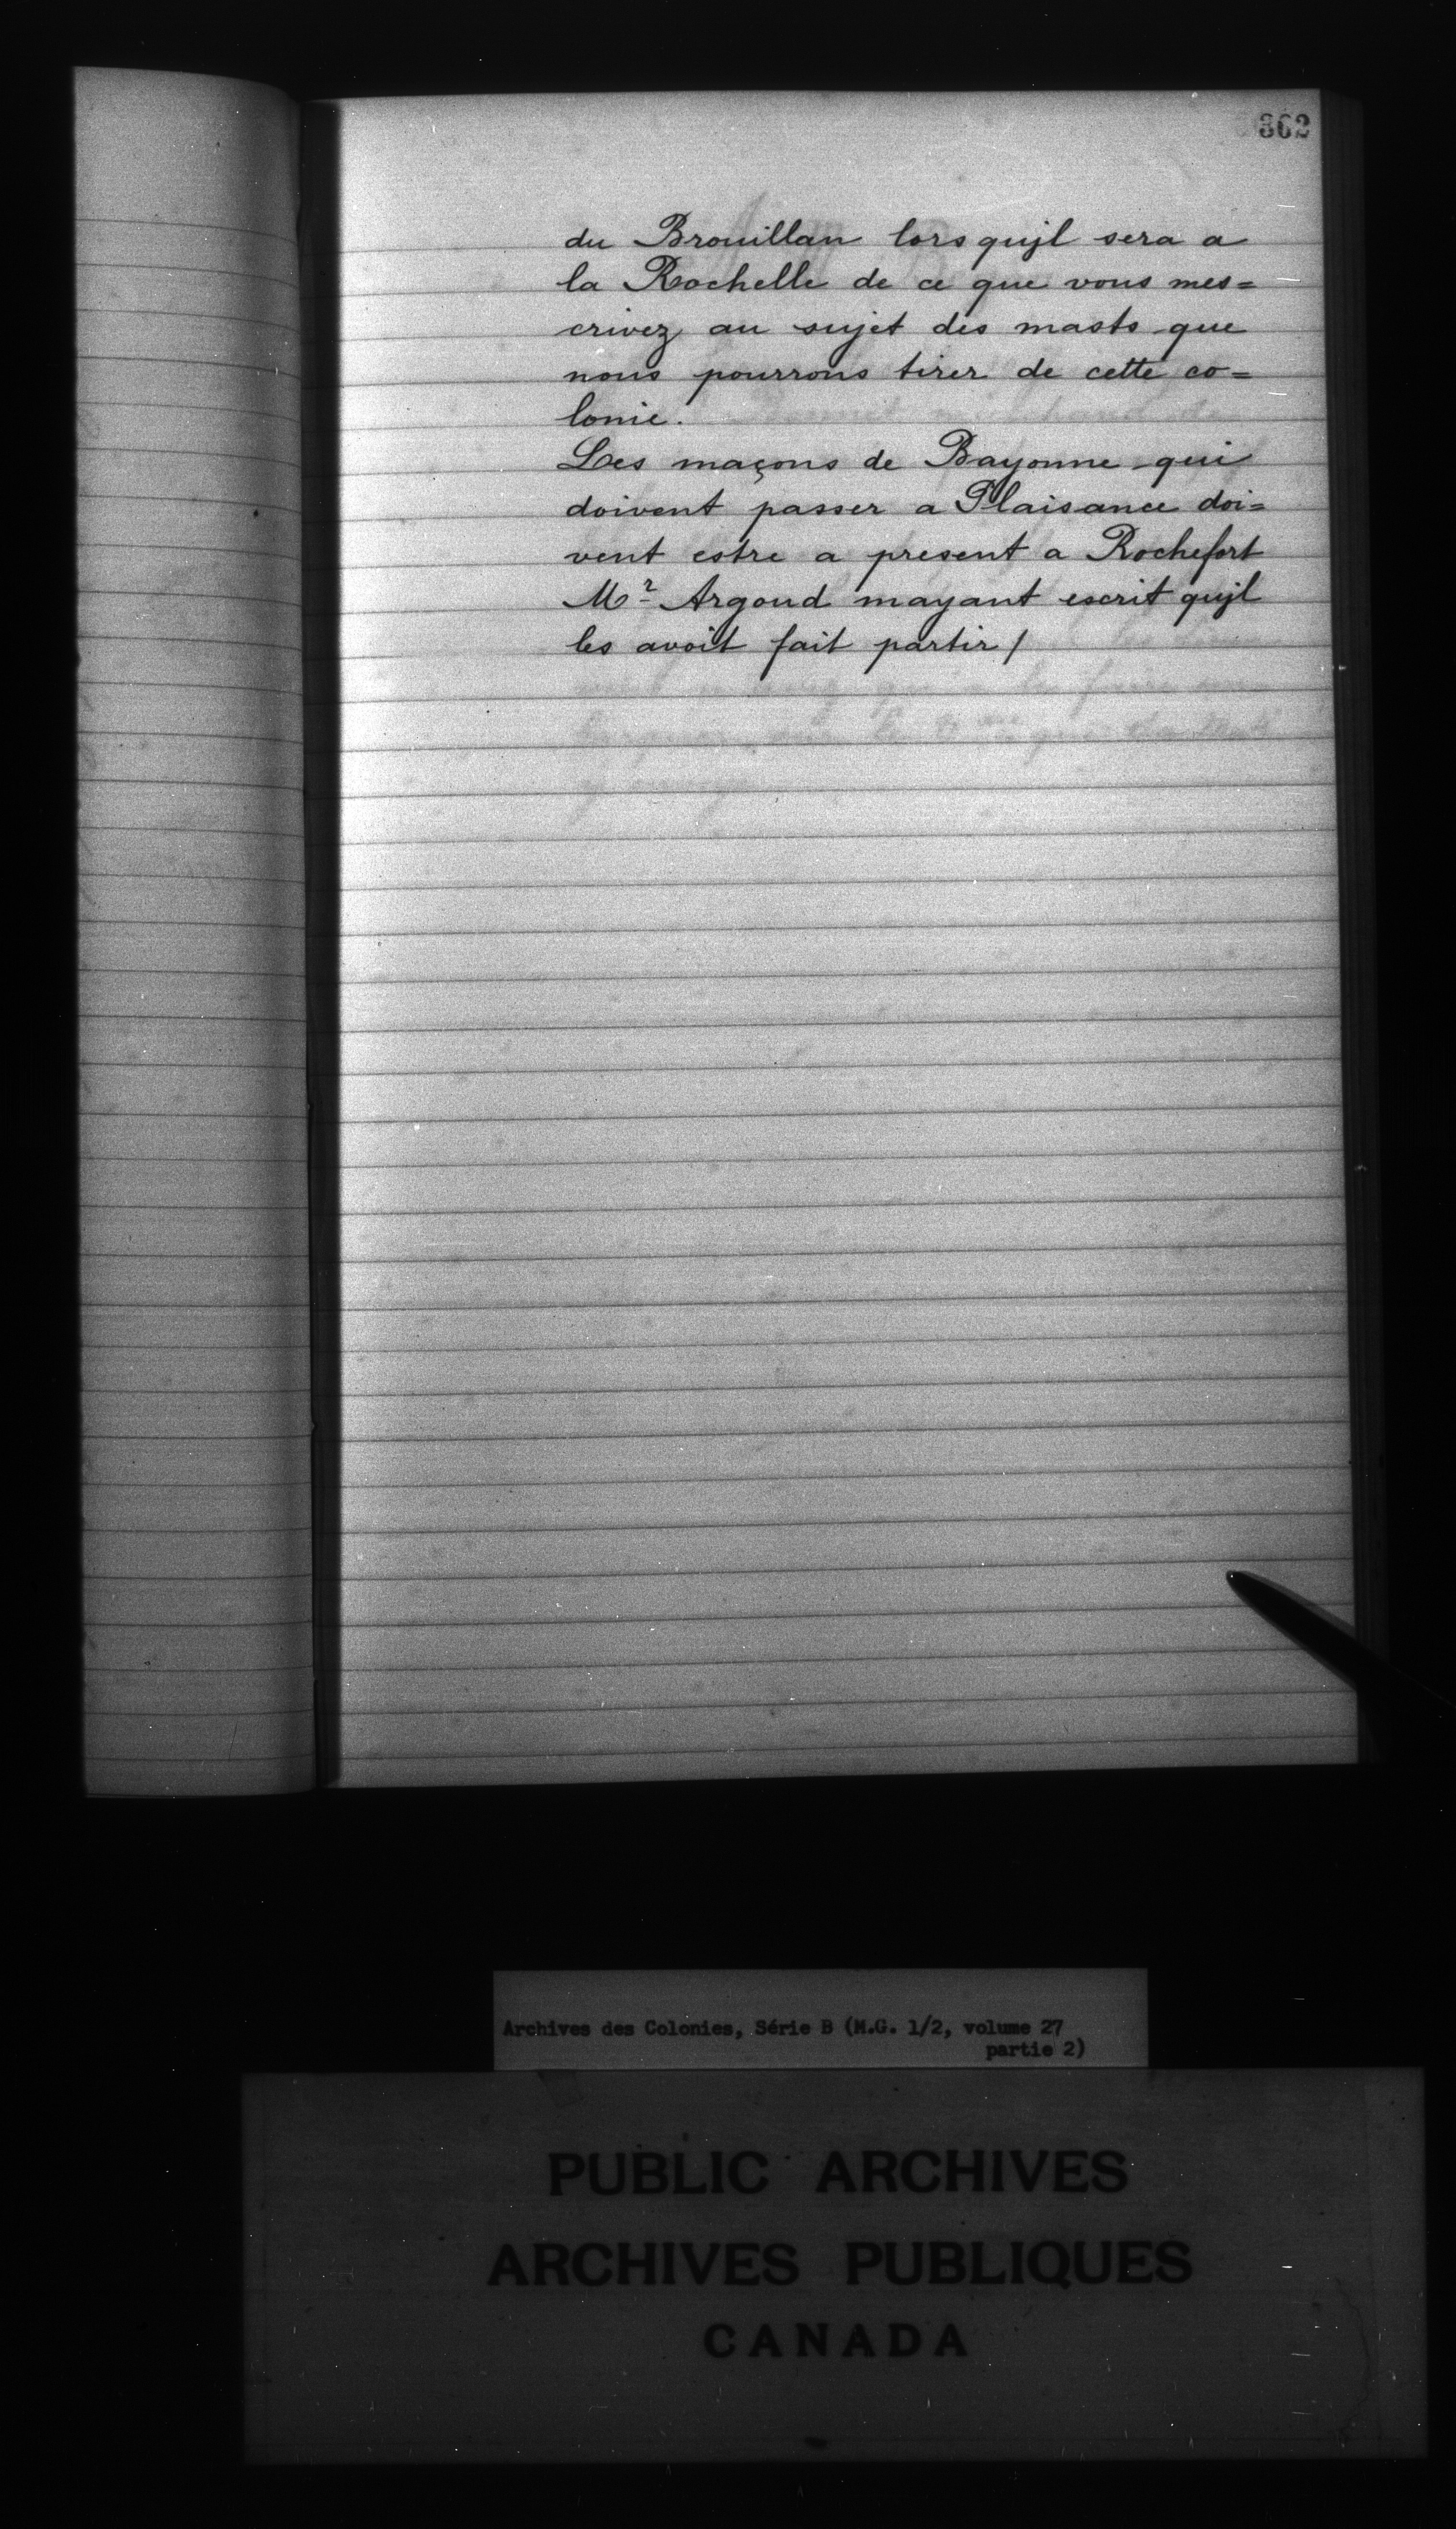 362
du Brouillan lors qujl sera a
la Rochelle de ce que vous mes=
crivez au sujet des masts que
nous pourrons tirer de cette co=
lonie.
Les maçons de Bayonne qui
doivent passer a Plaisance doi=
vent estre a present a Rochefort
Mr Argoud mayant escrit qujl
les avoit fait partir /
Archives des Colonies, Série B (M.G. 1/2, volume 27
partie 2)
PUBLIC ARCHIVES
ARCHIVES PUBLIQUES
CANADA